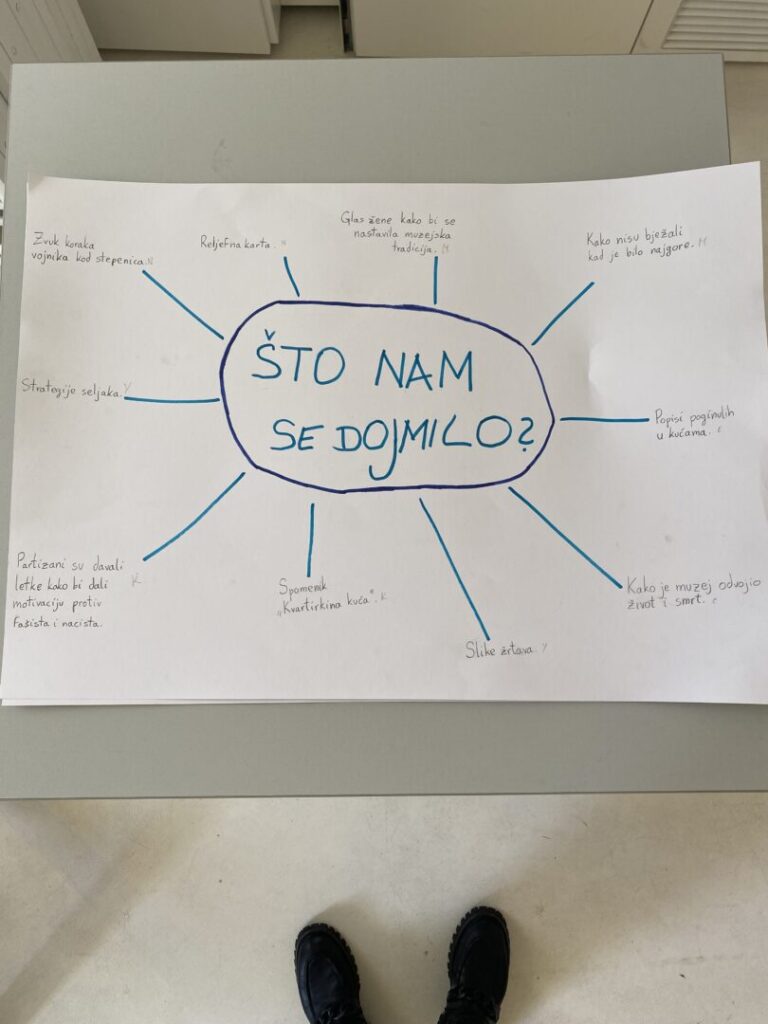 Glas žene kako bi se
nastavila muzejska
tradicija. M
Zvuk koraka
vojnika kod stepenica. N
Reljefna karta. N
Kako nisu bježali
kad je bilo najgore. M
ŠTO NAM
SE DOJMILO?
Strategije seljaka. Y
Popisi poginulih
u kućama. C
Partizani su davali
letke kako bi dali K
motivaciju protiv
fašista i nacista.
Spomenik
„Kvartirkina kuća“. K
Kako je muzej odvojio
život i smrt. C
Slike žrtava. Y